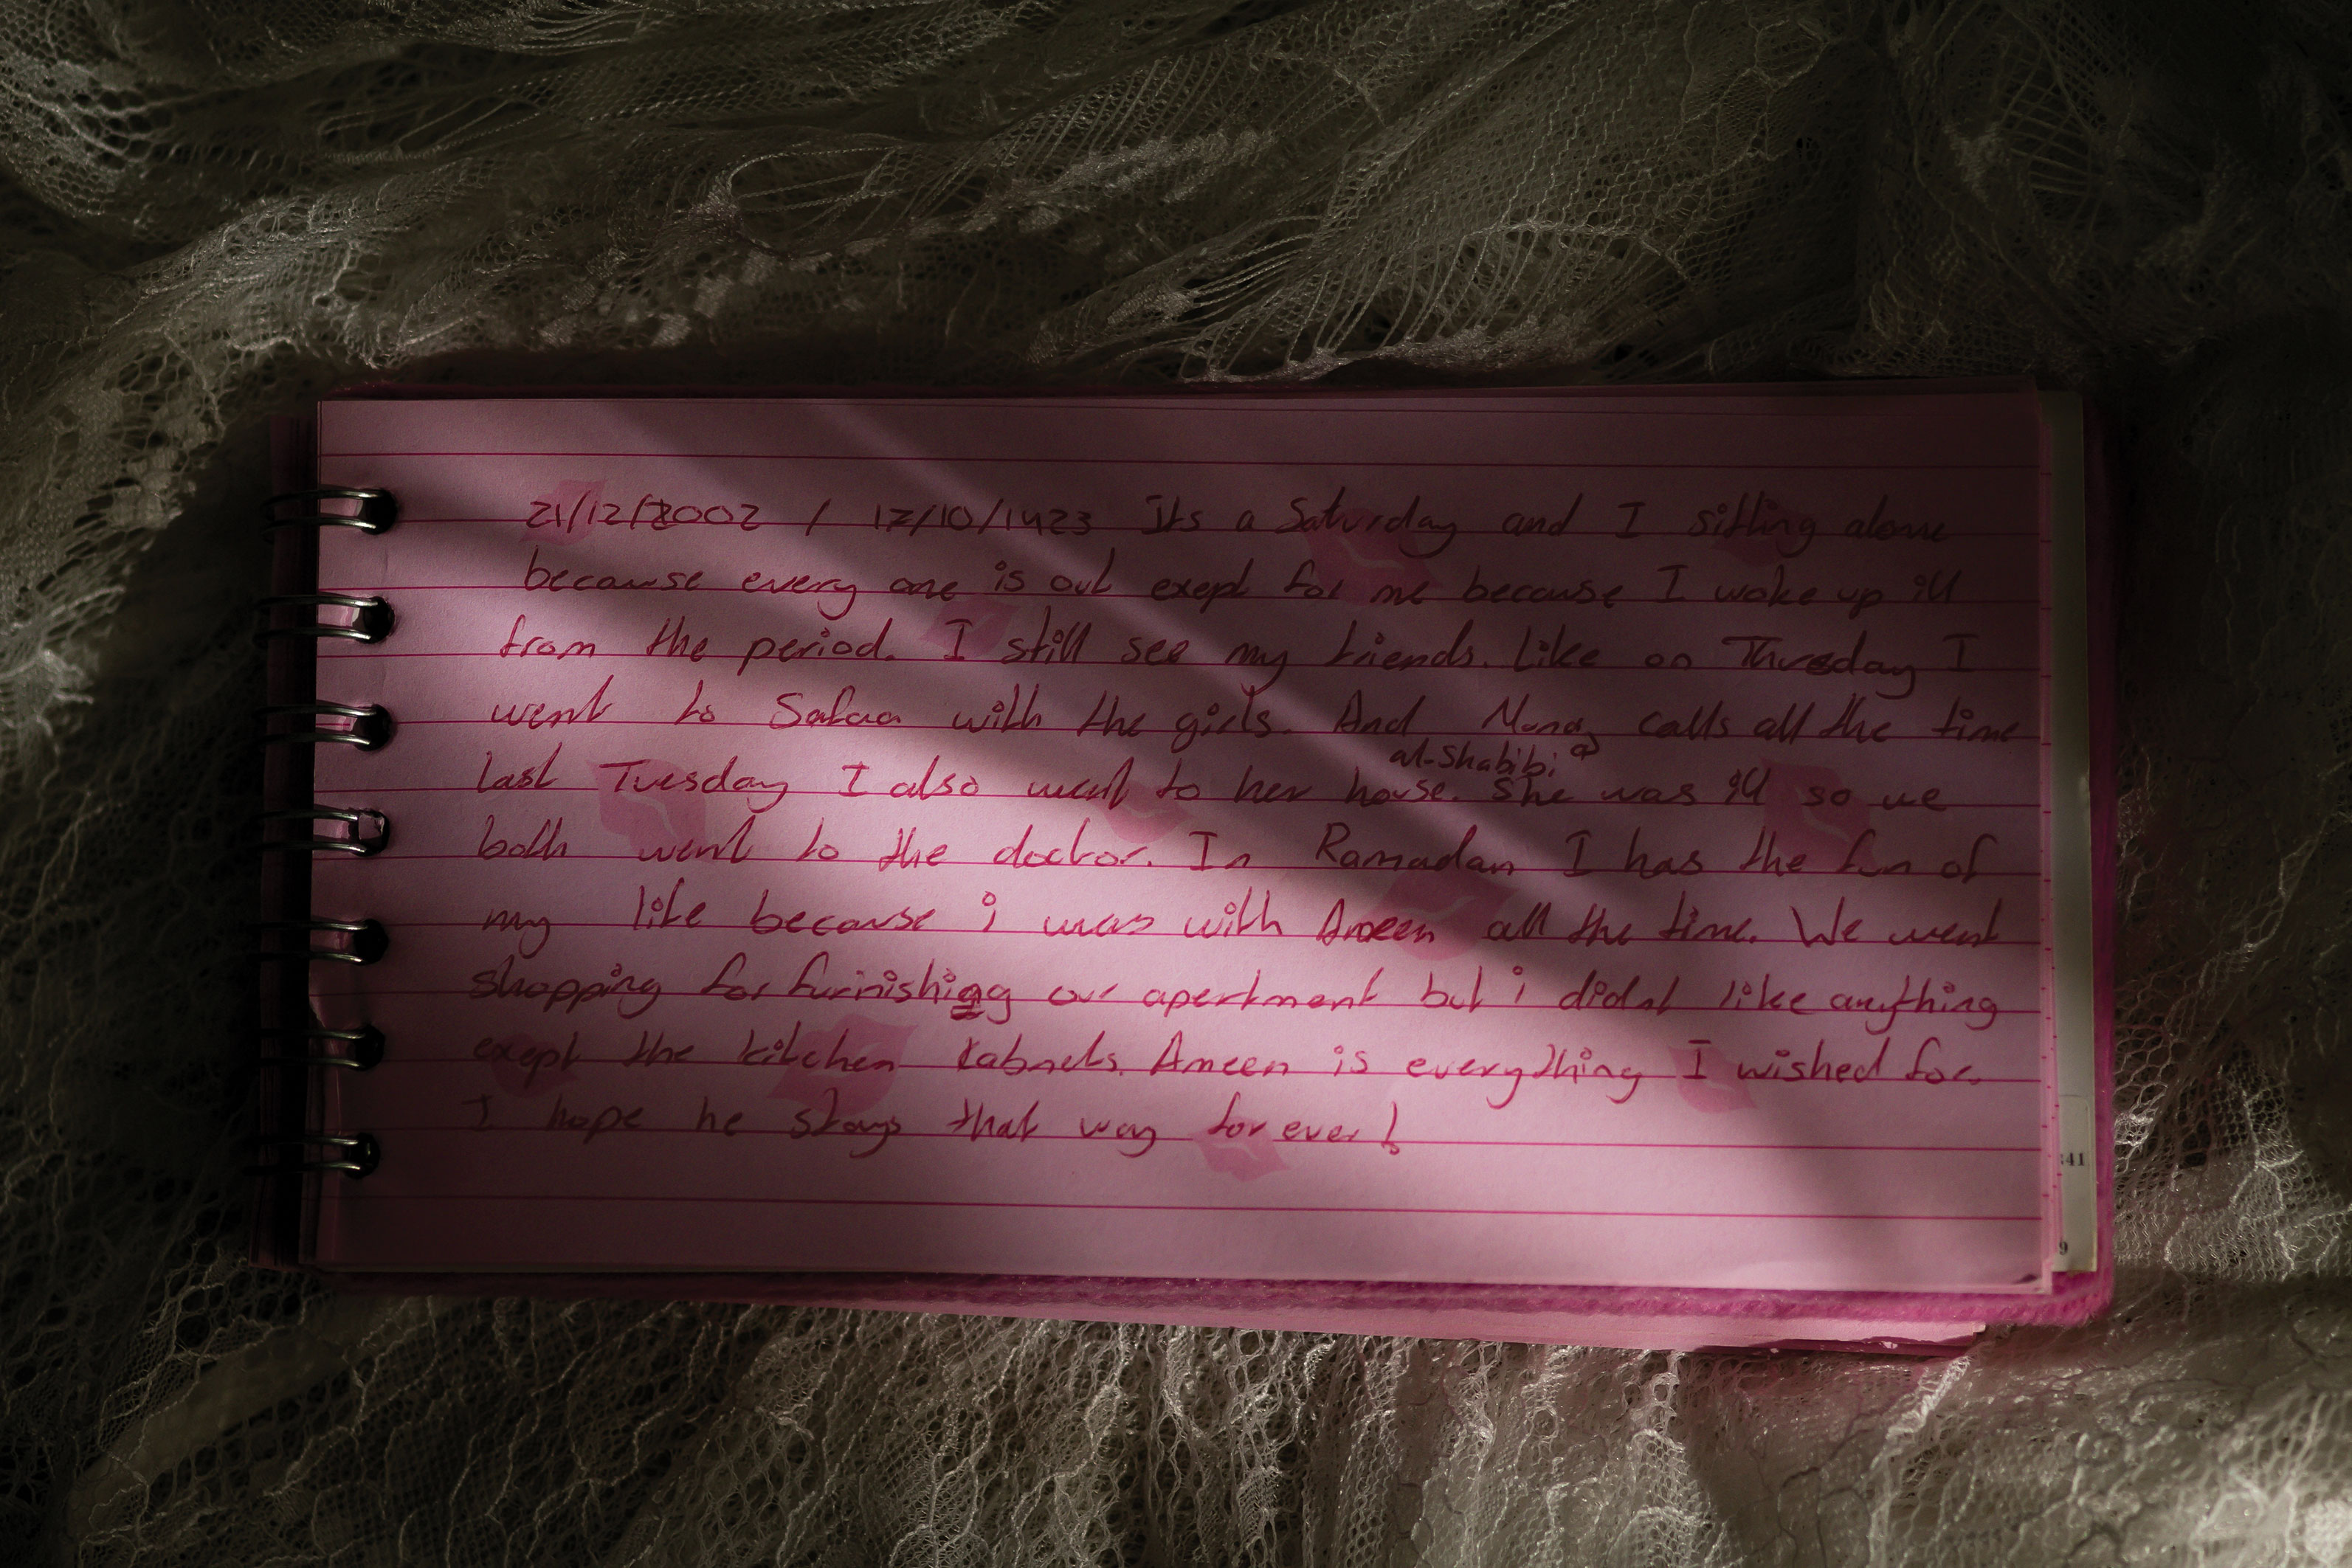 21/12/2002 / 17/10/1423 Its a Saturday and I sitting alone
because every one is out exept for me because I woke up ill
from the period. I still see my friends. Like on Thursday I
went to Safaa with the girls. And Mona calls all the time
al-Shabibi
last Tuesday I also went to her house. She was ill so we
both went to the doctor. In Ramadan I has the fun of
my life because i was with Ameen all the time. We went
shopping for furnishing our apertment but i didnt like anything
exept the kitchen kabnets. Ameen is everything I wished for.
I hope he stays that way forever!
:41
9